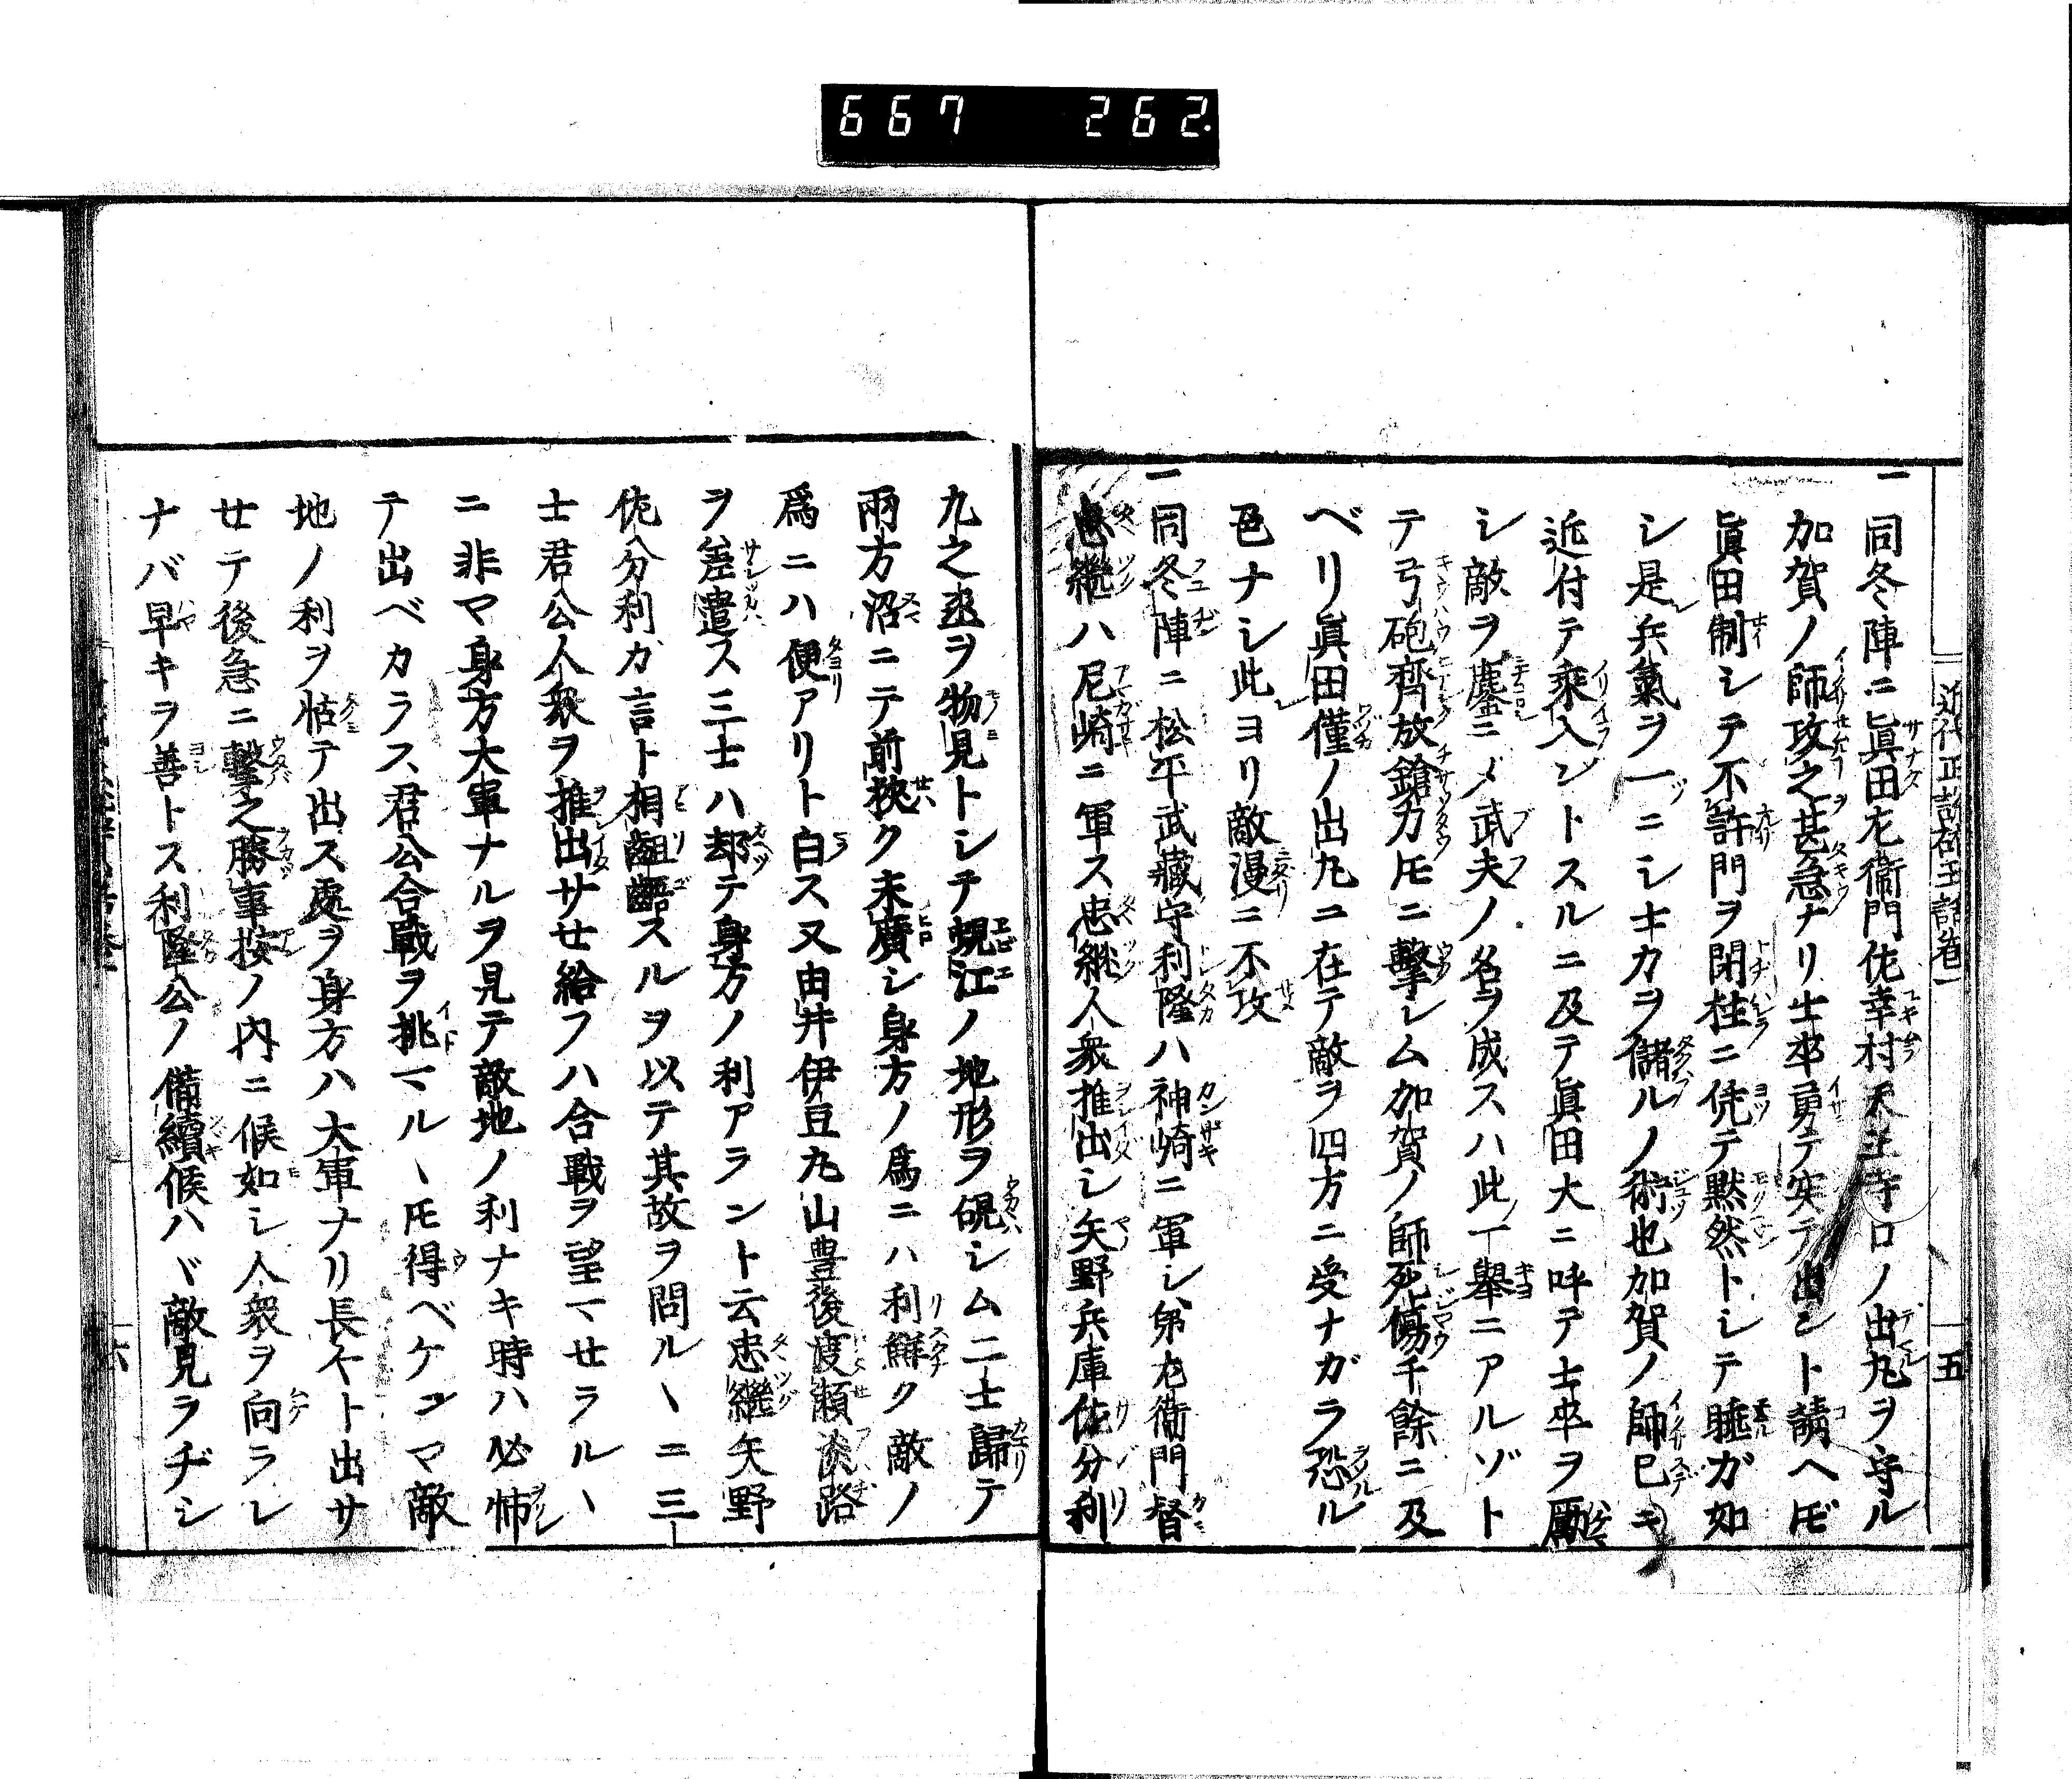 667 262.
五
一同冬陣ニ眞田左衞門佐幸村天王寺口ノ出丸ヲ守ル
加賀ノ師攻之甚急ナリ士卒勇テ突テ出ント請ヘ𪜈
眞田制シテ不許門ヲ閉柱ニ凭テ默然トシテ睡ガ如
シ是兵氣ヲ一ニシ士力ヲ儲ルノ術也加賀ノ師已ニ
近付テ乘入ントスルニ及テ眞田大ニ呼テ士卒ヲ厲
シ敵ヲ鏖ニメ武夫ノ名ヲ成スハ此一擧ニアルゾト
テ弓砲齊放鎗刀𪜈ニ擊シム加賀ノ師死傷千餘ニ及
ベリ眞田僅ノ出丸ニ在テ敵ヲ四方ニ受ナガラ恐ル
色ナシ此ヨリ敵漫ニ不攻
一同冬陣ニ松平武藏守利隆ハ神崎ニ軍シ弟左衞門督
忠繼ハ尼崎ニ軍ス忠繼人衆推出シ矢野兵庫佐分利
九之丞ヲ物見トシテ蜆江ノ地形ヲ覘シム二士歸テ
兩方沼ニテ前挾ク末廣シ身方ノ爲ニハ利鮮ク敵ノ
爲ニハ便アリト白ス又由井伊豆丸山豊後渡瀬淡路
ヲ差遣ス三士ハ却テ身方ノ利アラント云忠繼矢野
佐分利カ言ト相齟齬スルヲ以テ其故ヲ問ルヽニ三
士君公人衆ヲ推出サせ給フハ合戰ヲ望マせラルヽ
ニ非マ身方大軍ナルヲ見テ敵地ノ利ナキ時ハ必怖
テ出ベカラス君公合戰ヲ挑マルヽ𪜈得ベケンマ敵
地ノ利ヲ怙テ出ス處ヲ身方ハ大軍ナリ長々ト出サ
せテ後急ニ擊之勝事按ノ内ニ候如シ人衆ヲ向ラレ
ナバ早キヲ善トス利隆公ノ備續候ハヾ敵見ラヂシ